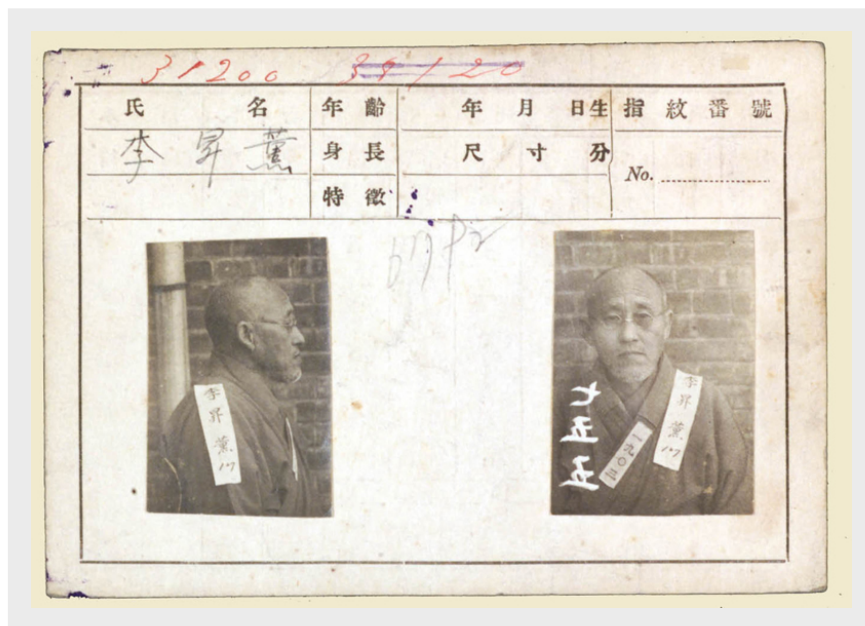 31200 39120
氏名 年齡 年月日生 指紋番號
李昇薰 身長 尺寸分 No.
特徵
李昇薰
17
李昇薰
17
七五五
一九〇三